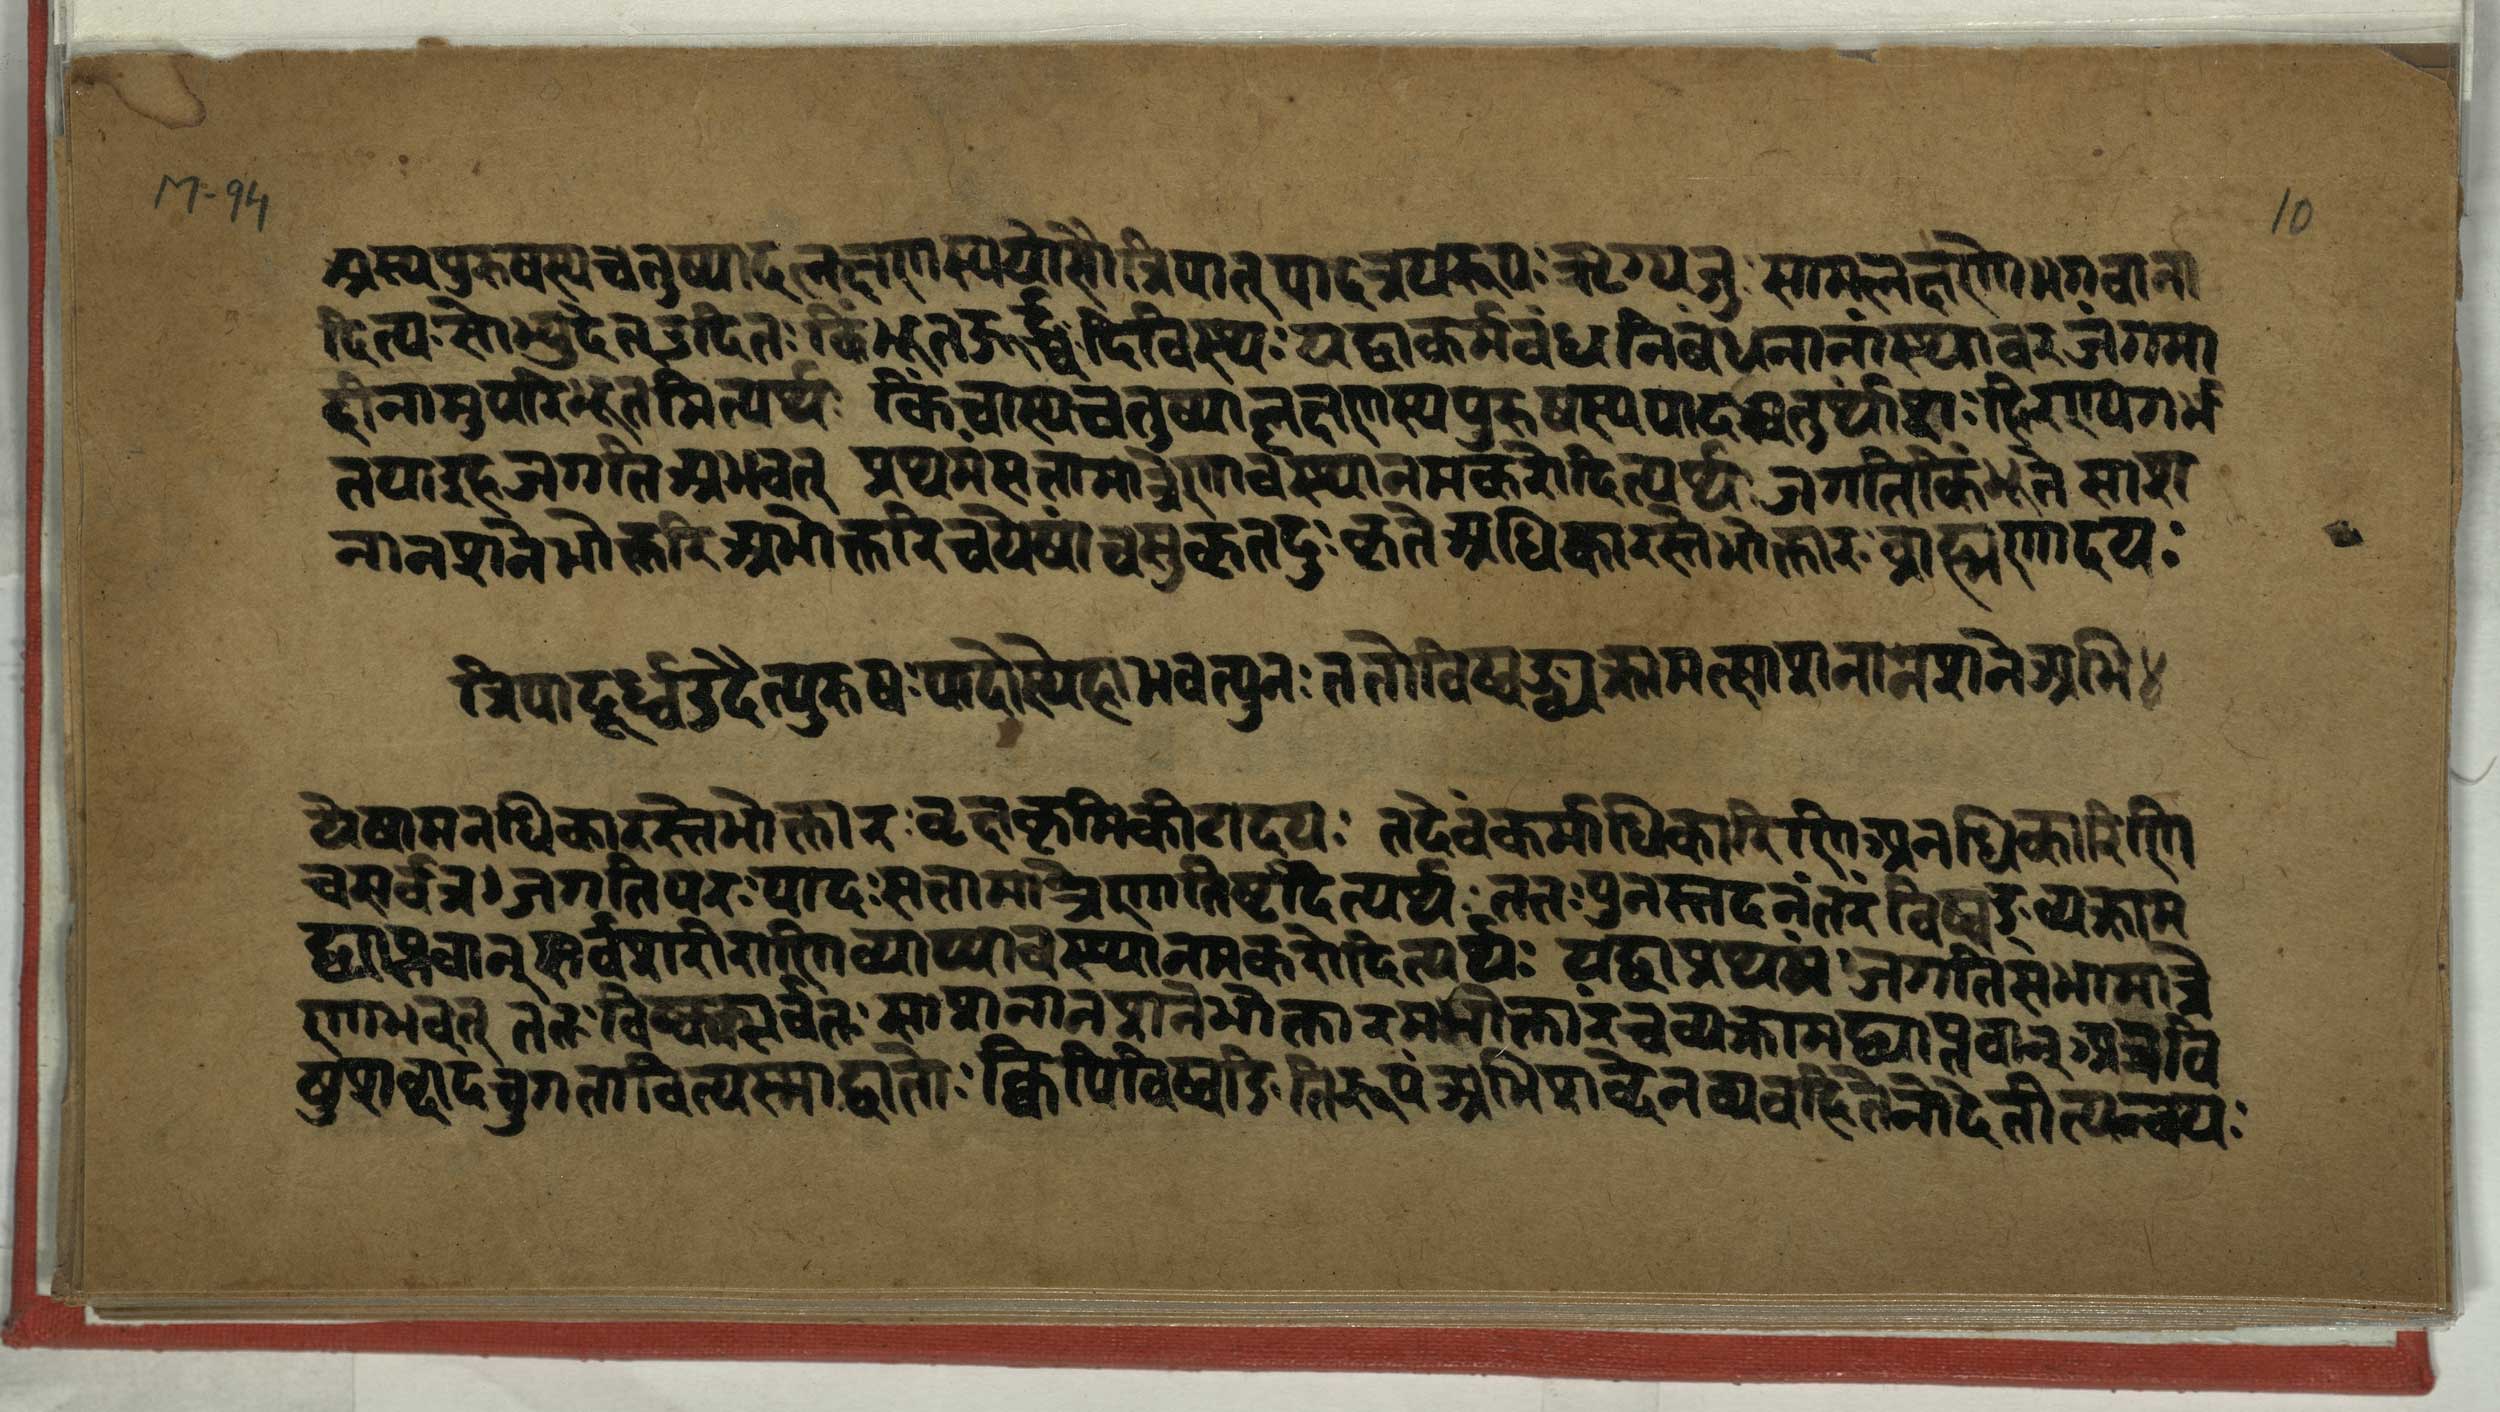 M-94
10
अस्य पुरुषस्य चतुष्पादलक्षणस्य योसौ त्रिपात् पादत्रयरूपः ऋग्यजुः सामलक्षणो भगवाना
दित्यः सोभ्युदेत् उदितः किंभूत ऊर्द्ध्वः दिविस्थः यद्वा कर्मबंधनिबंधनानां स्थावरजंगमा
दीनामुपरिभूतमित्यर्थः किंचास्य चतुष्पाल्लक्षणस्य पुरुषस्य पादश्चतुर्थांशः हिरण्यगर्भ
तया इह जगति अभवत् प्रथमं सत्तामात्रेणावस्थानमकरोदित्यर्थः जगति किंभूते साश
नानशने भोक्तरि अभोक्तरि च येषां च सुकृतदुःकृते अधिकारस्ते भोक्तारः ब्राह्मणादयः
त्रिपादूर्ध्व उदैत्पुरुषः पादोस्येहाभवत्पुनः ततो विष्वङ्व्यक्रामत्साशनानशने अभि ४
येषामनधिकारस्ते भोक्तारः वृक्षकृमिकीटादयः तदेवं कर्माधिकारिणि अनधिकारिणि
च सर्वत्र जगति परः पादः सत्तामात्रेण तिष्ठदित्यर्थः ततः पुनस्तदनंतरं विष्वङ् व्यक्राम
द्व्याप्तवान् सर्वशरीराणि व्याप्यावस्थानमकरोदित्यर्थः यद्वा प्रथमं जगति सत्तामात्रे
णाभवत् ततः विष्वक् सर्वतः साशनानशने भोक्तारमभोक्तारं च व्यक्रामद्व्याप्तवान् अत्र वि
षुशब्दादंचुगतावित्यस्माद्धातोः क्विपि विष्वङिति रूपं अभिशब्देन व्यवहितेनोदेतीत्यन्वयः